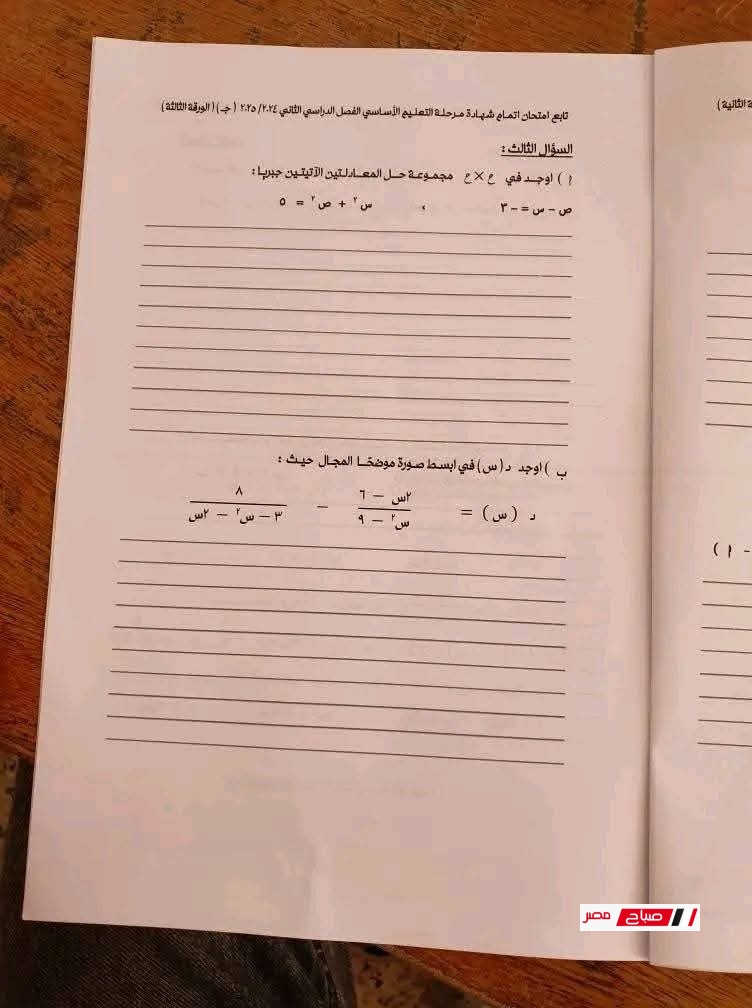 تابع امتحان اتمام شهادة مرحلة التعليم الأساسي الفصل الدراسي الثاني ٢٠٢٤/ ٢٠٢٥ ( جـ) ( الورقة الثالثة )
السؤال الثالث :
أ ) اوجد في ح × ح مجموعة حل المعادلتين الآتيتين جبريا :
ص - س = - ٣ ، س ٢ + ص ٢ = ٥
ب ) اوجد د ( س ) في ابسط صورة موضحا المجال حيث :
د ( س ) = ٢س - ٦ / س٢ - ٩ - ٨ / ٣ - س٢ - ٢س
ة الثانية )
- ١ )
صباح مصر